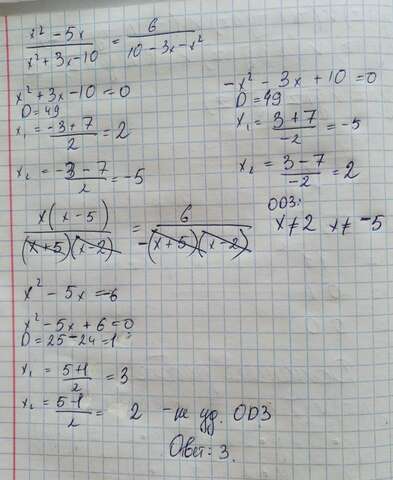 (x² - 5x)/(x² + 3x - 10) = 6/(10 - 3x - x²)
x² + 3x - 10 = 0
D = 49
x₁ = (-3 + 7)/2 = 2
x₂ = (-3 - 7)/2 = -5
-x² - 3x + 10 = 0
D = 49
x₁ = (3 + 7)/-2 = -5
x₂ = (3 - 7)/-2 = 2
ОДЗ:
x ≠ 2 x ≠ -5
x(x - 5)/((x + 5)(x - 2)) = 6/(-(x + 5)(x - 2))
x² - 5x = -6
x² - 5x + 6 = 0
D = 25 - 24 = 1
x₁ = (5 + 1)/2 = 3
x₂ = (5 - 1)/2 = 2 - не уд. ОДЗ
Ответ: 3.